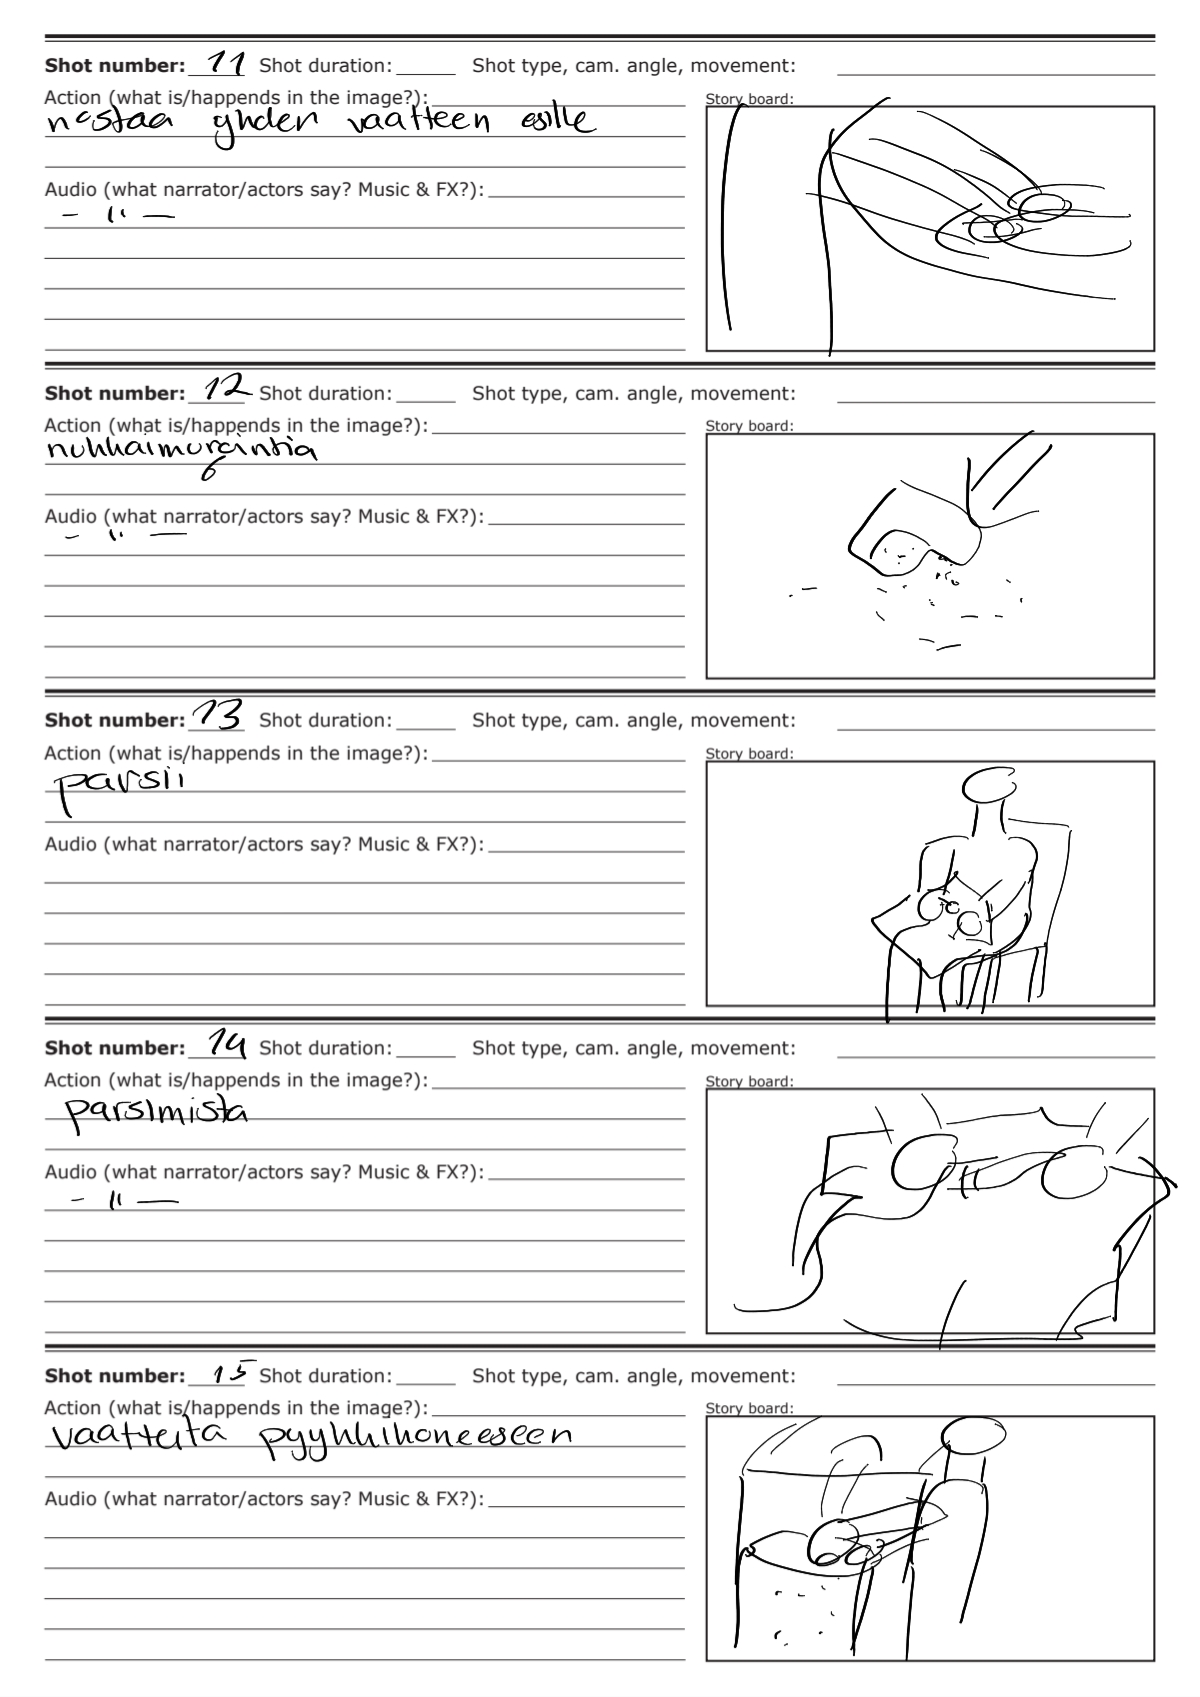 Shot number: 11 Shot duration: Shot type, cam. angle, movement:
Action (what is/happends in the image?):
Story board:
nostaa yhden vaatteen esille
Audio (what narrator/actors say? Music & FX?):
- " -
Shot number: 12 Shot duration: Shot type, cam. angle, movement:
Action (what is/happends in the image?):
Story board:
Audio (what narrator/actors say? Music & FX?):
- " -
Shot number: 13 Shot duration: Shot type, cam. angle, movement:
Action (what is/happends in the image?):
Story board:
parsii
Audio (what narrator/actors say? Music & FX?):
Shot number: 14 Shot duration: Shot type, cam. angle, movement:
Action (what is/happends in the image?):
Story board:
parsimista
Audio (what narrator/actors say? Music & FX?):
- " -
Shot number: 15 Shot duration: Shot type, cam. angle, movement:
Action (what is/happends in the image?):
Story board:
vaatteita pyykkikoneeseen
Audio (what narrator/actors say? Music & FX?):